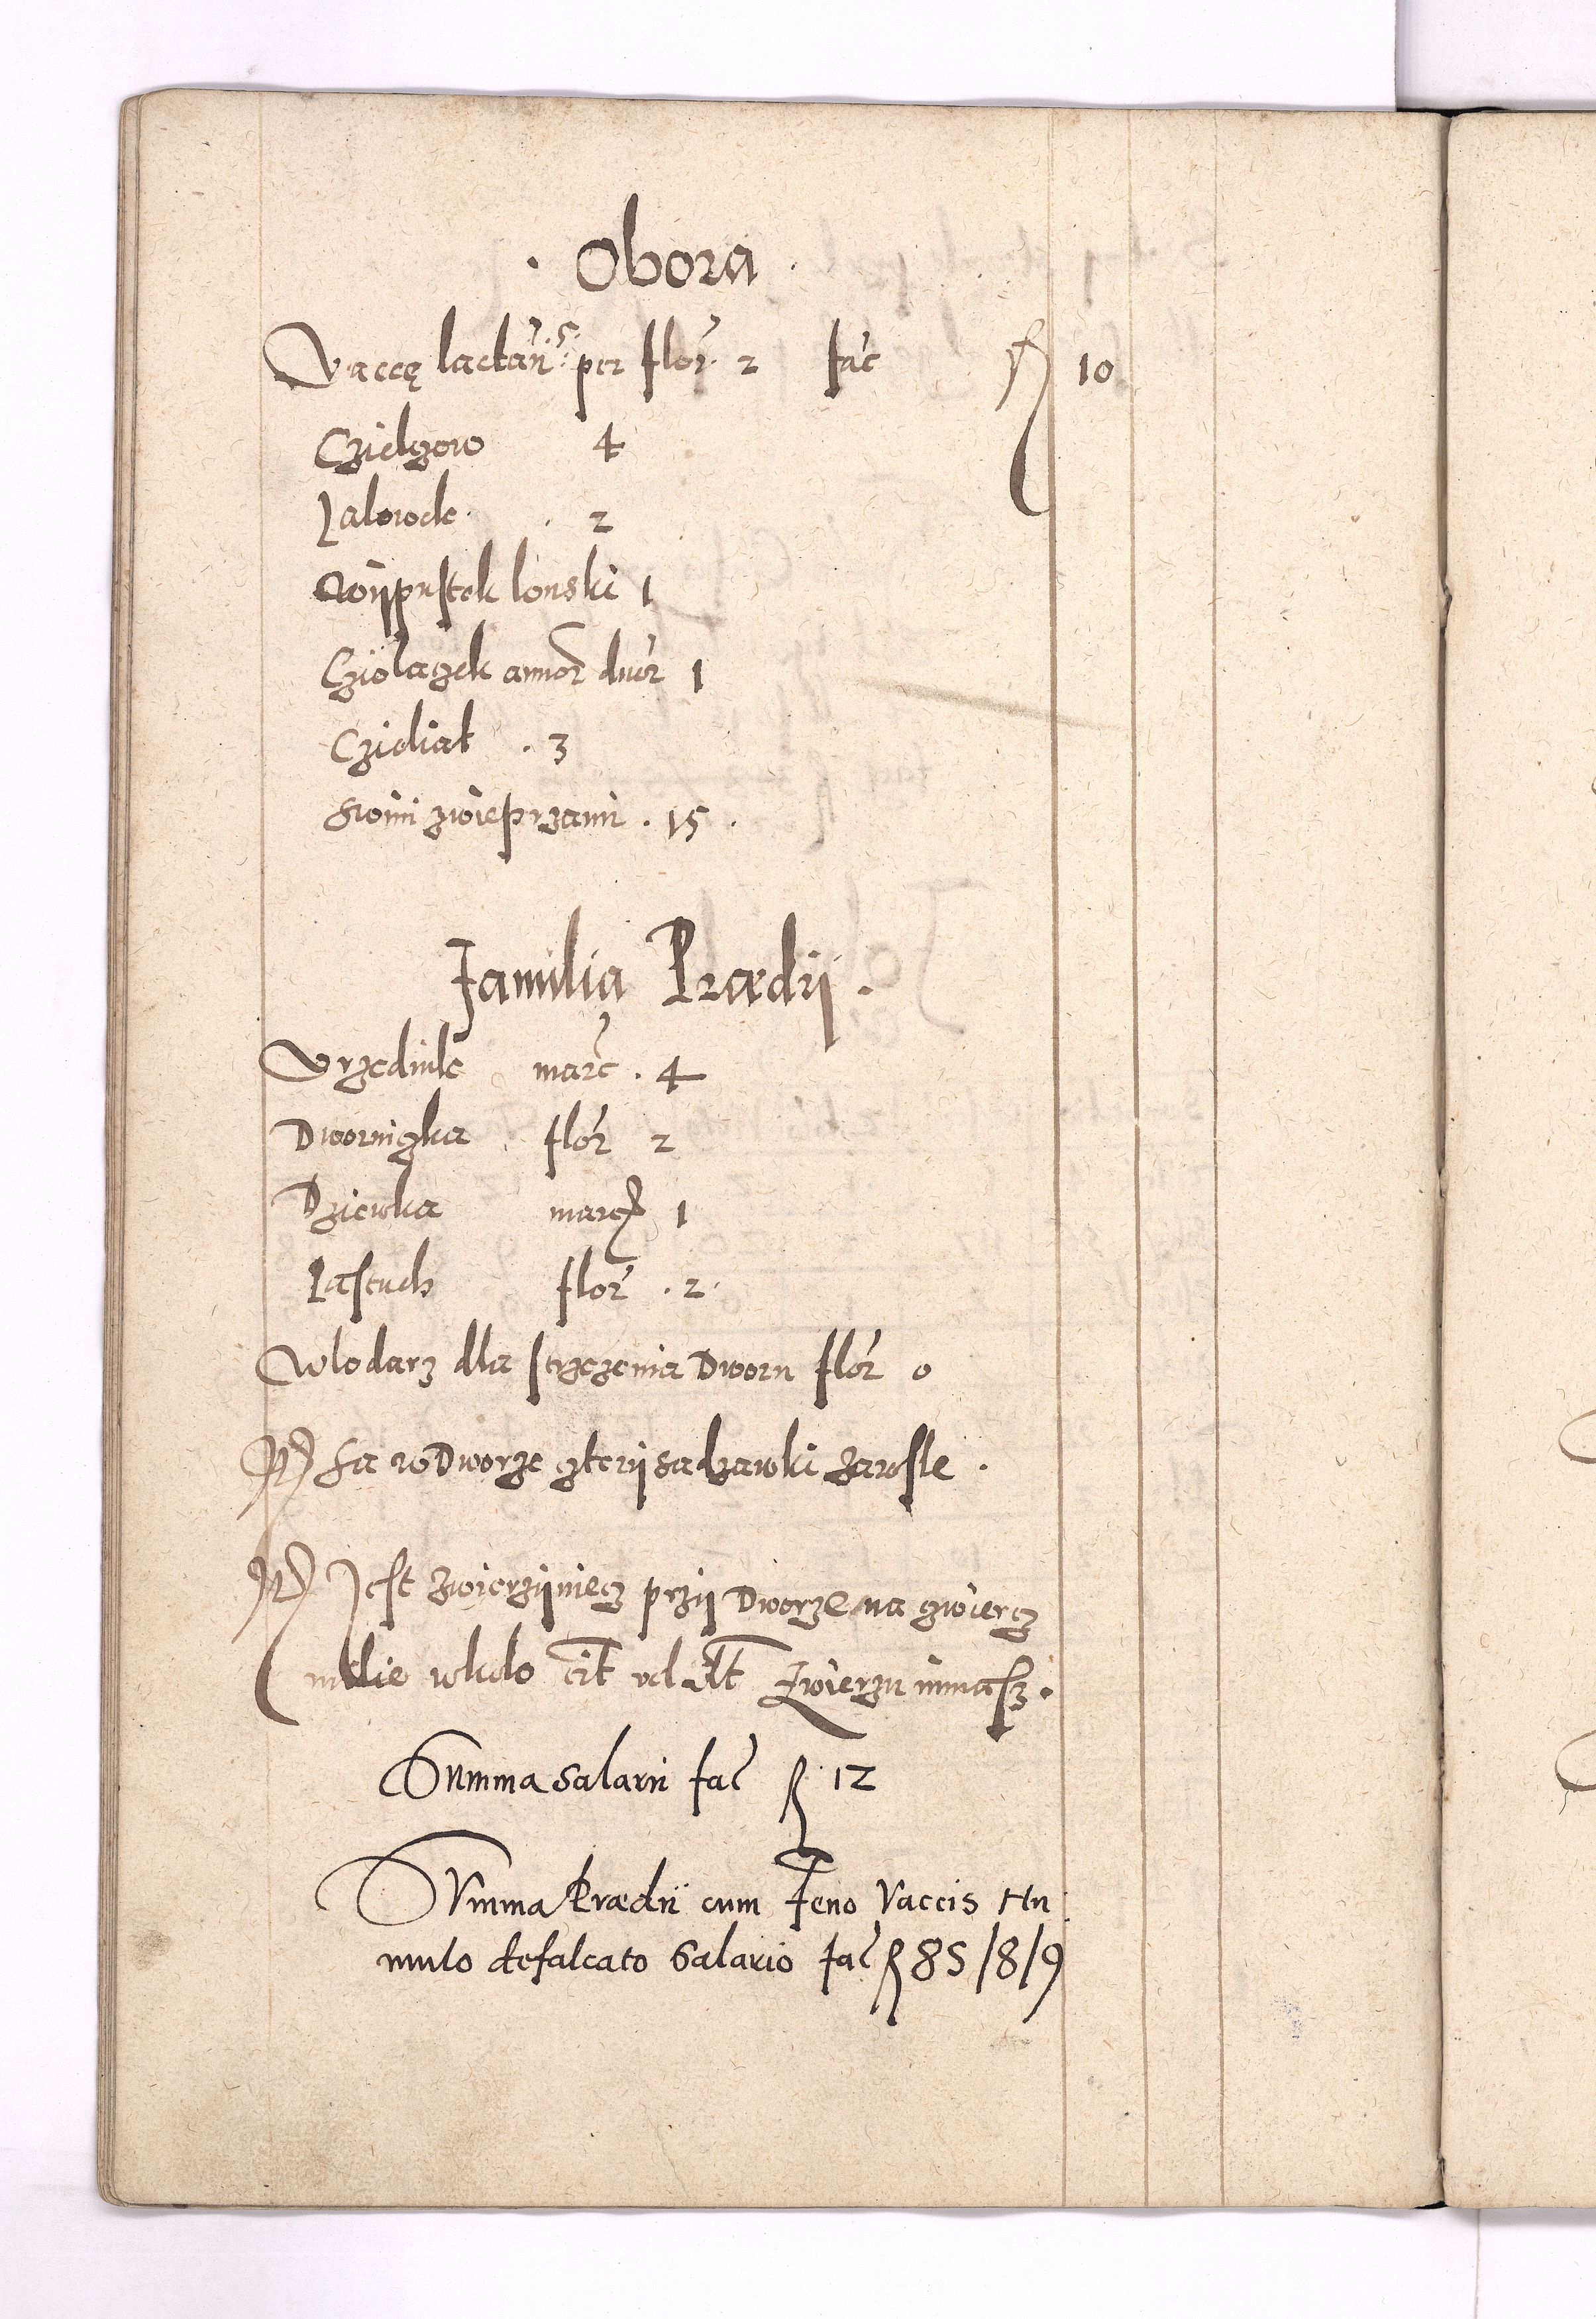 . Obora .
Vaccę lactan̄ .5. per flor. 2 fac̄ fl 10
Czielgow 4
Jalowek . 2
Wÿpustek lonski 1
Cziolagek annor duor 1
Czieliat . 3
Swini zwieprzami . 15 .
Familia Prædij .
Vrzednik marc̄ . 4
Dwornigka flor 2
Dziewka marc 1
Pastuch flor . 2 .
Wlodarz dla strzezenia Dworu flor 0
Sa w Dworze czterÿ sadzawki zarosle .
Jest zwierzÿniecz przÿ Dworze na czwiercz
milie wkolo Zwierzu
Summa Salarii fac̄ fl 12
Summa Prædii cum Feno Vaccis Hu
mulo defalcato Salario fac̄ fl 85/8/9